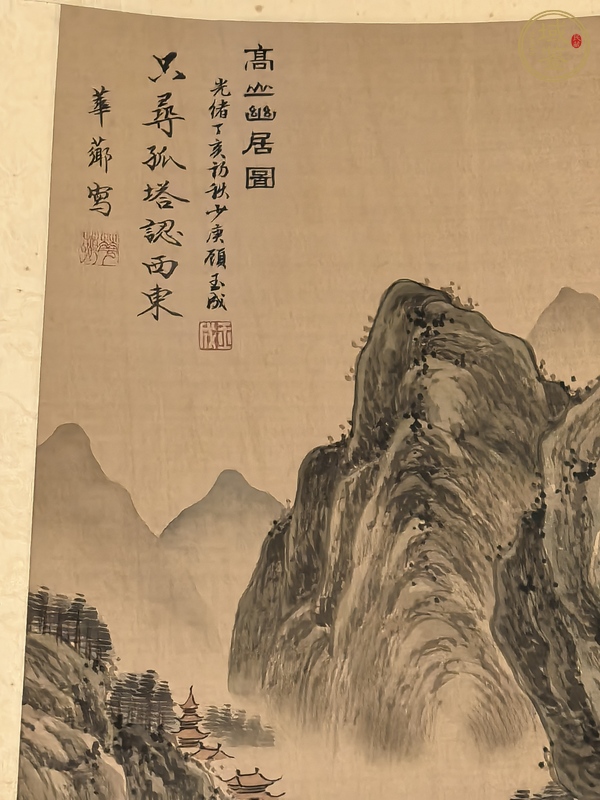 高山幽居圖
光緒丁亥初秋少庚顧玉成
玉成
只尋孤塔認西東
華薌寫